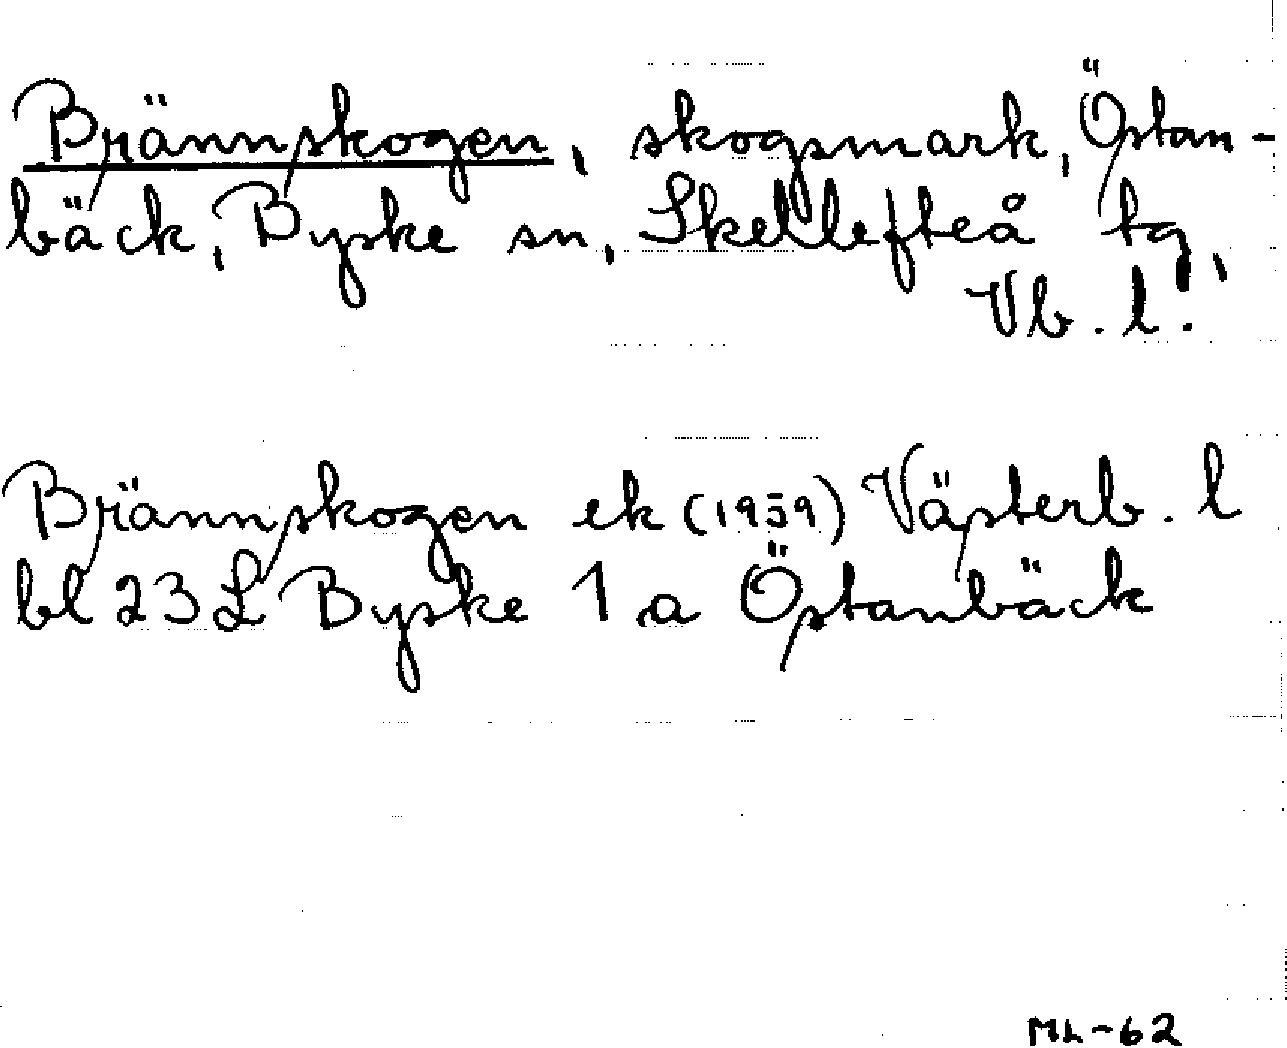 Brännskogen, skogsmark, Östan-
bäck, Byske sn, Skellefteå tg,
Vb. l.
Brännskogen ek (1959) Västerb. l
bl 23 L Byske 1 a Östanbäck
ML-62